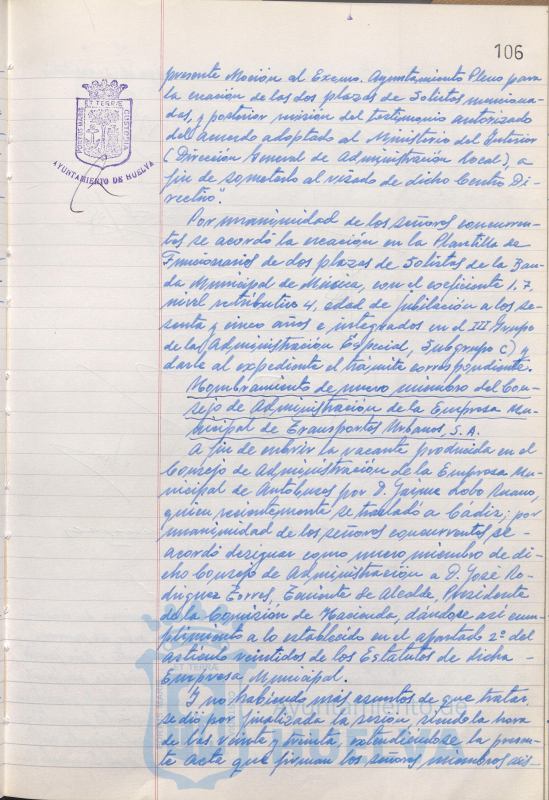 106
PORTUS MARIS ET TERRÆ CUSTODIA
AYUNTAMIENTO DE HUELVA
presente Moción al Excmo. Ayuntamiento Pleno para
la creación de las dos plazas de Solistas menciona-
das, y posterior misión del testimonio autorizado
del acuerdo adoptado al Ministerio del Interior
(Dirección General de Administración Local), a
fin de someterlo al visado de dicho Centro Di-
rectivo".
Por unanimidad de los señores concurren-
tes se acordó la creación en la Plantilla de
Funcionarios de dos plazas de Solistas de la Ban-
da Municipal de Música, con el coeficiente 1,7,
nivel retributivo 4, edad de jubilación a los se-
senta y cinco años e integrados en el III Grupo
de la (Administración Especial, Subgrupo C) y
darle al expediente el trámite correspondiente.
Nombramiento de nuevo miembro del Con-
sejo de Administración de la Empresa Mu-
nicipal de Transportes Urbanos, S.A.
A fin de cubrir la vacante producida en el
Consejo de Administración de la Empresa Mu-
nicipal de Autobuses por D. Jaime Lobo
quien recientemente se trasladó a Cádiz; por
unanimidad de los señores concurrentes se
acordó designar como nuevo miembro de di-
cho Consejo de Administración a D. José Ro-
dríguez Torres, Teniente de Alcalde, Presidente
de la Comisión de Hacienda, dándose así cum-
plimiento a lo establecido en el apartado 2º del
artículo veintidos de los Estatutos de dicha
Empresa Municipal.
Y no habiendo más asuntos de que tratar,
se dió por finalizada la sesión, siendo la hora
de las veinte y treinta, extendiéndose la presen-
te Acta que firman los señores miembros asis-
Ayuntamiento de
HUELVA